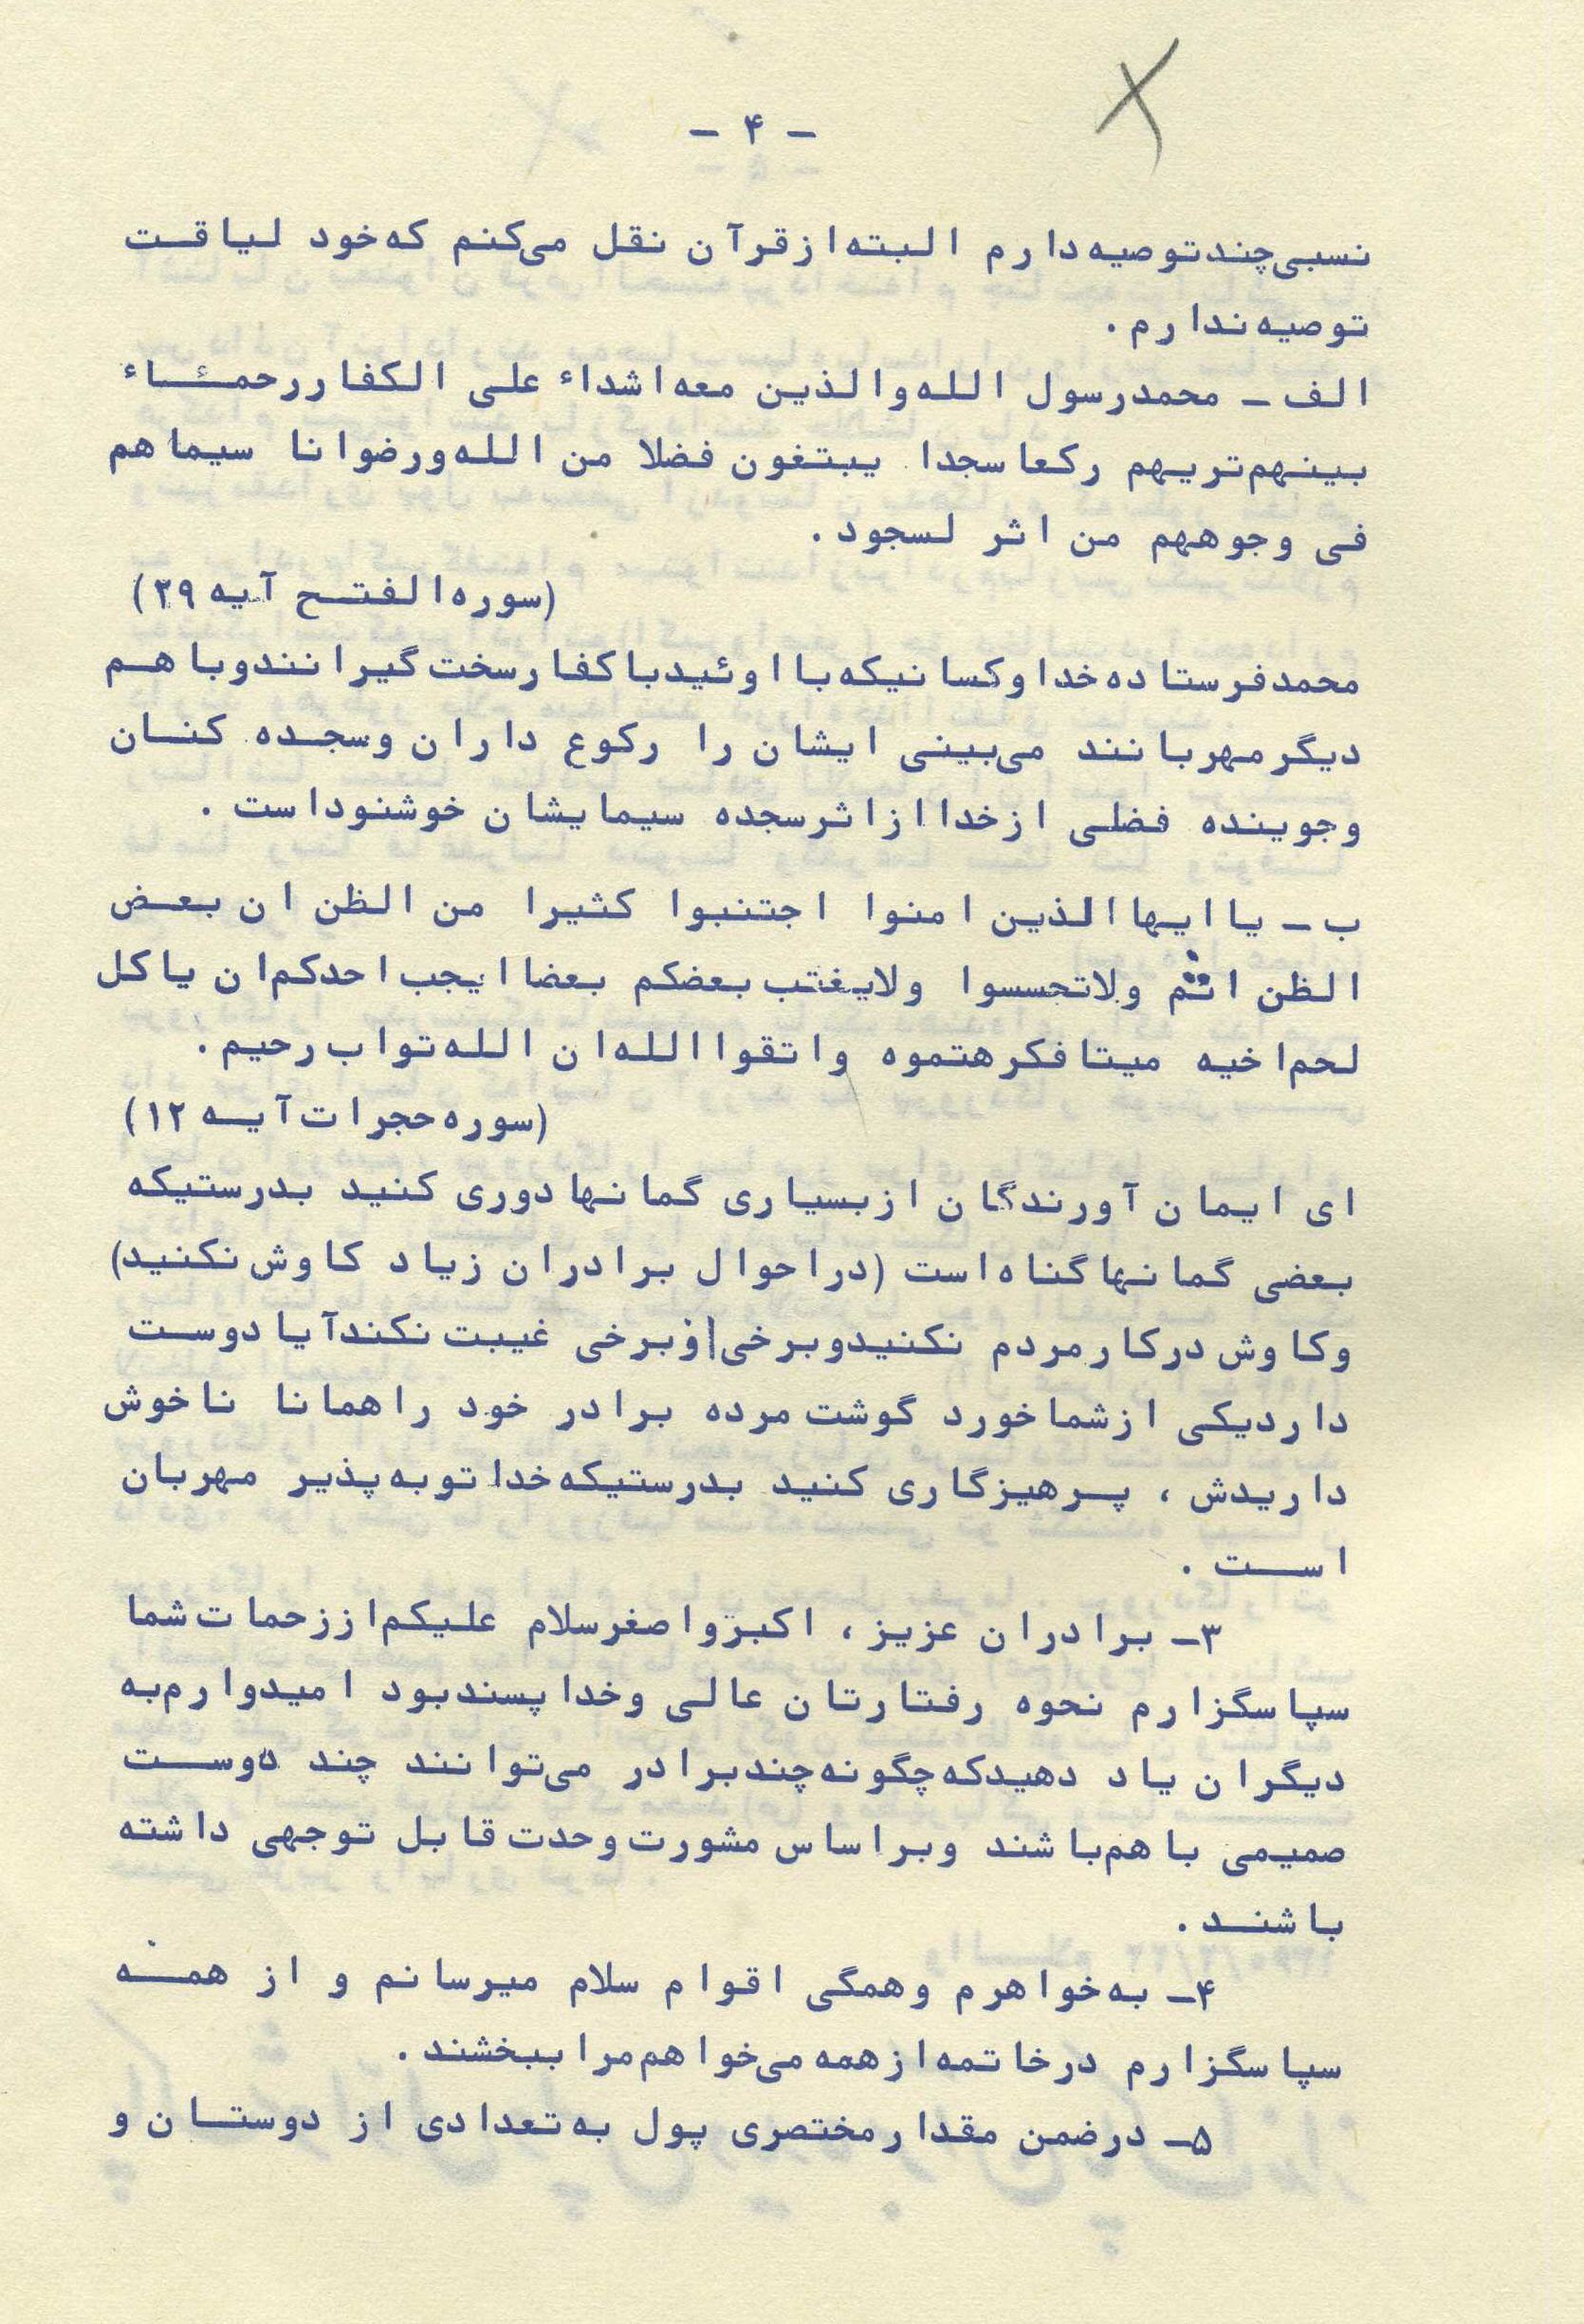 - ۴ -
نسبی چند توصیه دارم البته از قرآن نقل می‌کنم که خود لیاقت
توصیه ندارم.
الف - محمد رسول الله والذین معه اشداء علی الکفار رحمئاء
بینهم تریهم رکعا سجدا یبتغون فضلا من الله ورضوانا سیماهم
فی وجوههم من اثر لسجود.
(سوره الفتح آیه ۲۹)
محمد فرستاده خدا وکسانیکه با اوئید با کفار سخت گیرانند وبا هم
دیگر مهربانند می‌بینی ایشان را رکوع داران وسجده کنان
وجوینده فضلی از خدا از اثر سجده سیمایشان خوشنود است.
ب - یا ایها الذین امنوا اجتنبوا کثیرا من الظن ان بعض
الظن اثم ولاتحسسوا ولایغتب بعضکم بعضا ایجب احدکم ان یاکل
لحم اخیه میتا فکرهتموه واتقوا الله ان الله تواب رحیم.
(سوره حجرات آیه ۱۲)
ای ایمان آورندگان از بسیاری گمانها دوری کنید بدرستیکه
بعضی گمانها گناه است (در احوال برادران زیاد کاوش نکنید)
وکاوش در کار مردم نکنید وبرخی از برخی غیبت نکند آیا دوست
دارد یکی از شما خورد گوشت مرده برادر خود را همانا ناخوش
داریدش ، پرهیزگاری کنید بدرستیکه خدا توبه پذیر مهربان
است.
۳- برادران عزیز، اکبر و اصغر سلام علیکم از زحمات شما
سپاسگزارم نحوه رفتارتان عالی وخدا پسند بود امیدوارم به
دیگران یاد دهید که چگونه چند برادر می‌توانند چند دوست
صمیمی با هم باشند وبر اساس مشورت وحدت قابل توجهی داشته
باشند.
۴- به خواهرم وهمگی اقوام سلام میرسانم و از همه
سپاسگزارم در خاتمه از همه می‌خواهم مرا ببخشند.
۵- در ضمن مقدار مختصری پول به تعدادی از دوستان و